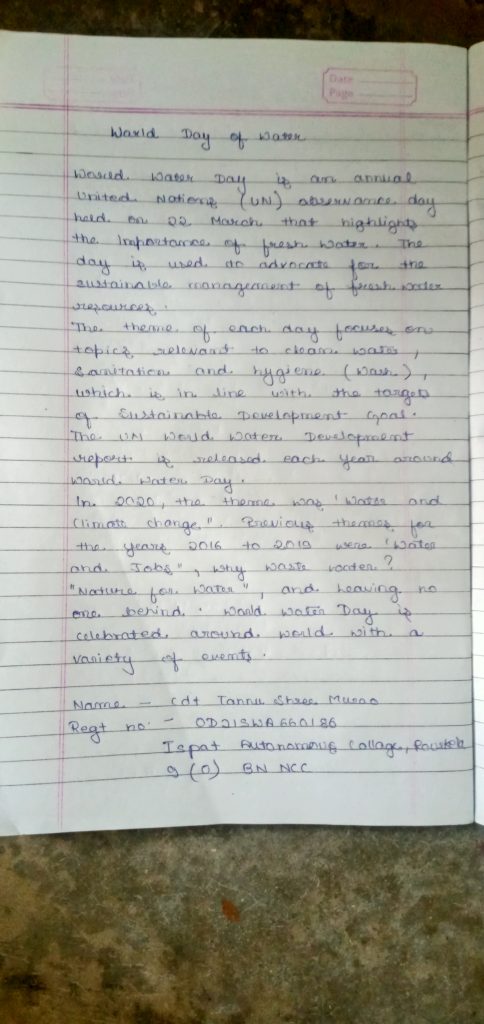 Date
Page
World Day of Water
World Water Day is an annual
United Nations (UN) observance day
held on 22 March that highlights
the importance of fresh water. The
day is used to advocate for the
sustainable management of fresh water
resources.
The theme of each day focuses on
topics relevant to clean water,
Sanitation and hygiene (Wash),
which is in line with the targets
of Sustainable Development Goal.
The UN World Water Development
report is released each year around
World Water Day.
In 2020, the theme was 'Water and
Climate change". Previous themes for
the years 2016 to 2019 were 'Water
and Jobs", why waste water?
"Nature for Water", and leaving no
one behind. World Water Day is
celebrated around world with a
variety of events.
Name - Cdt Tannu Shree
Regt no: - OD21SWA660186
Ispat Autonomous Collage,
9 (O) BN NCC